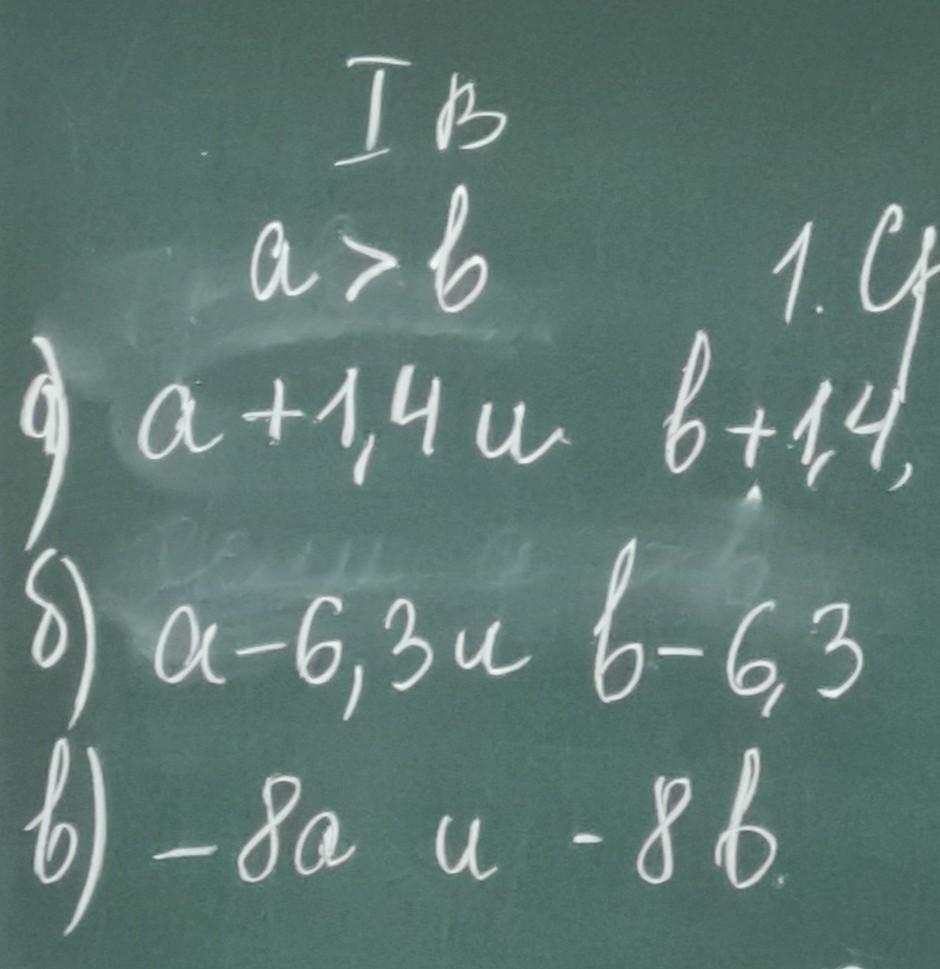 I в
a > b
1. Ср
а) a + 1,4 и b + 1,4,
б) a - 6,3 и b - 6,3
в) - 8a и - 8b.